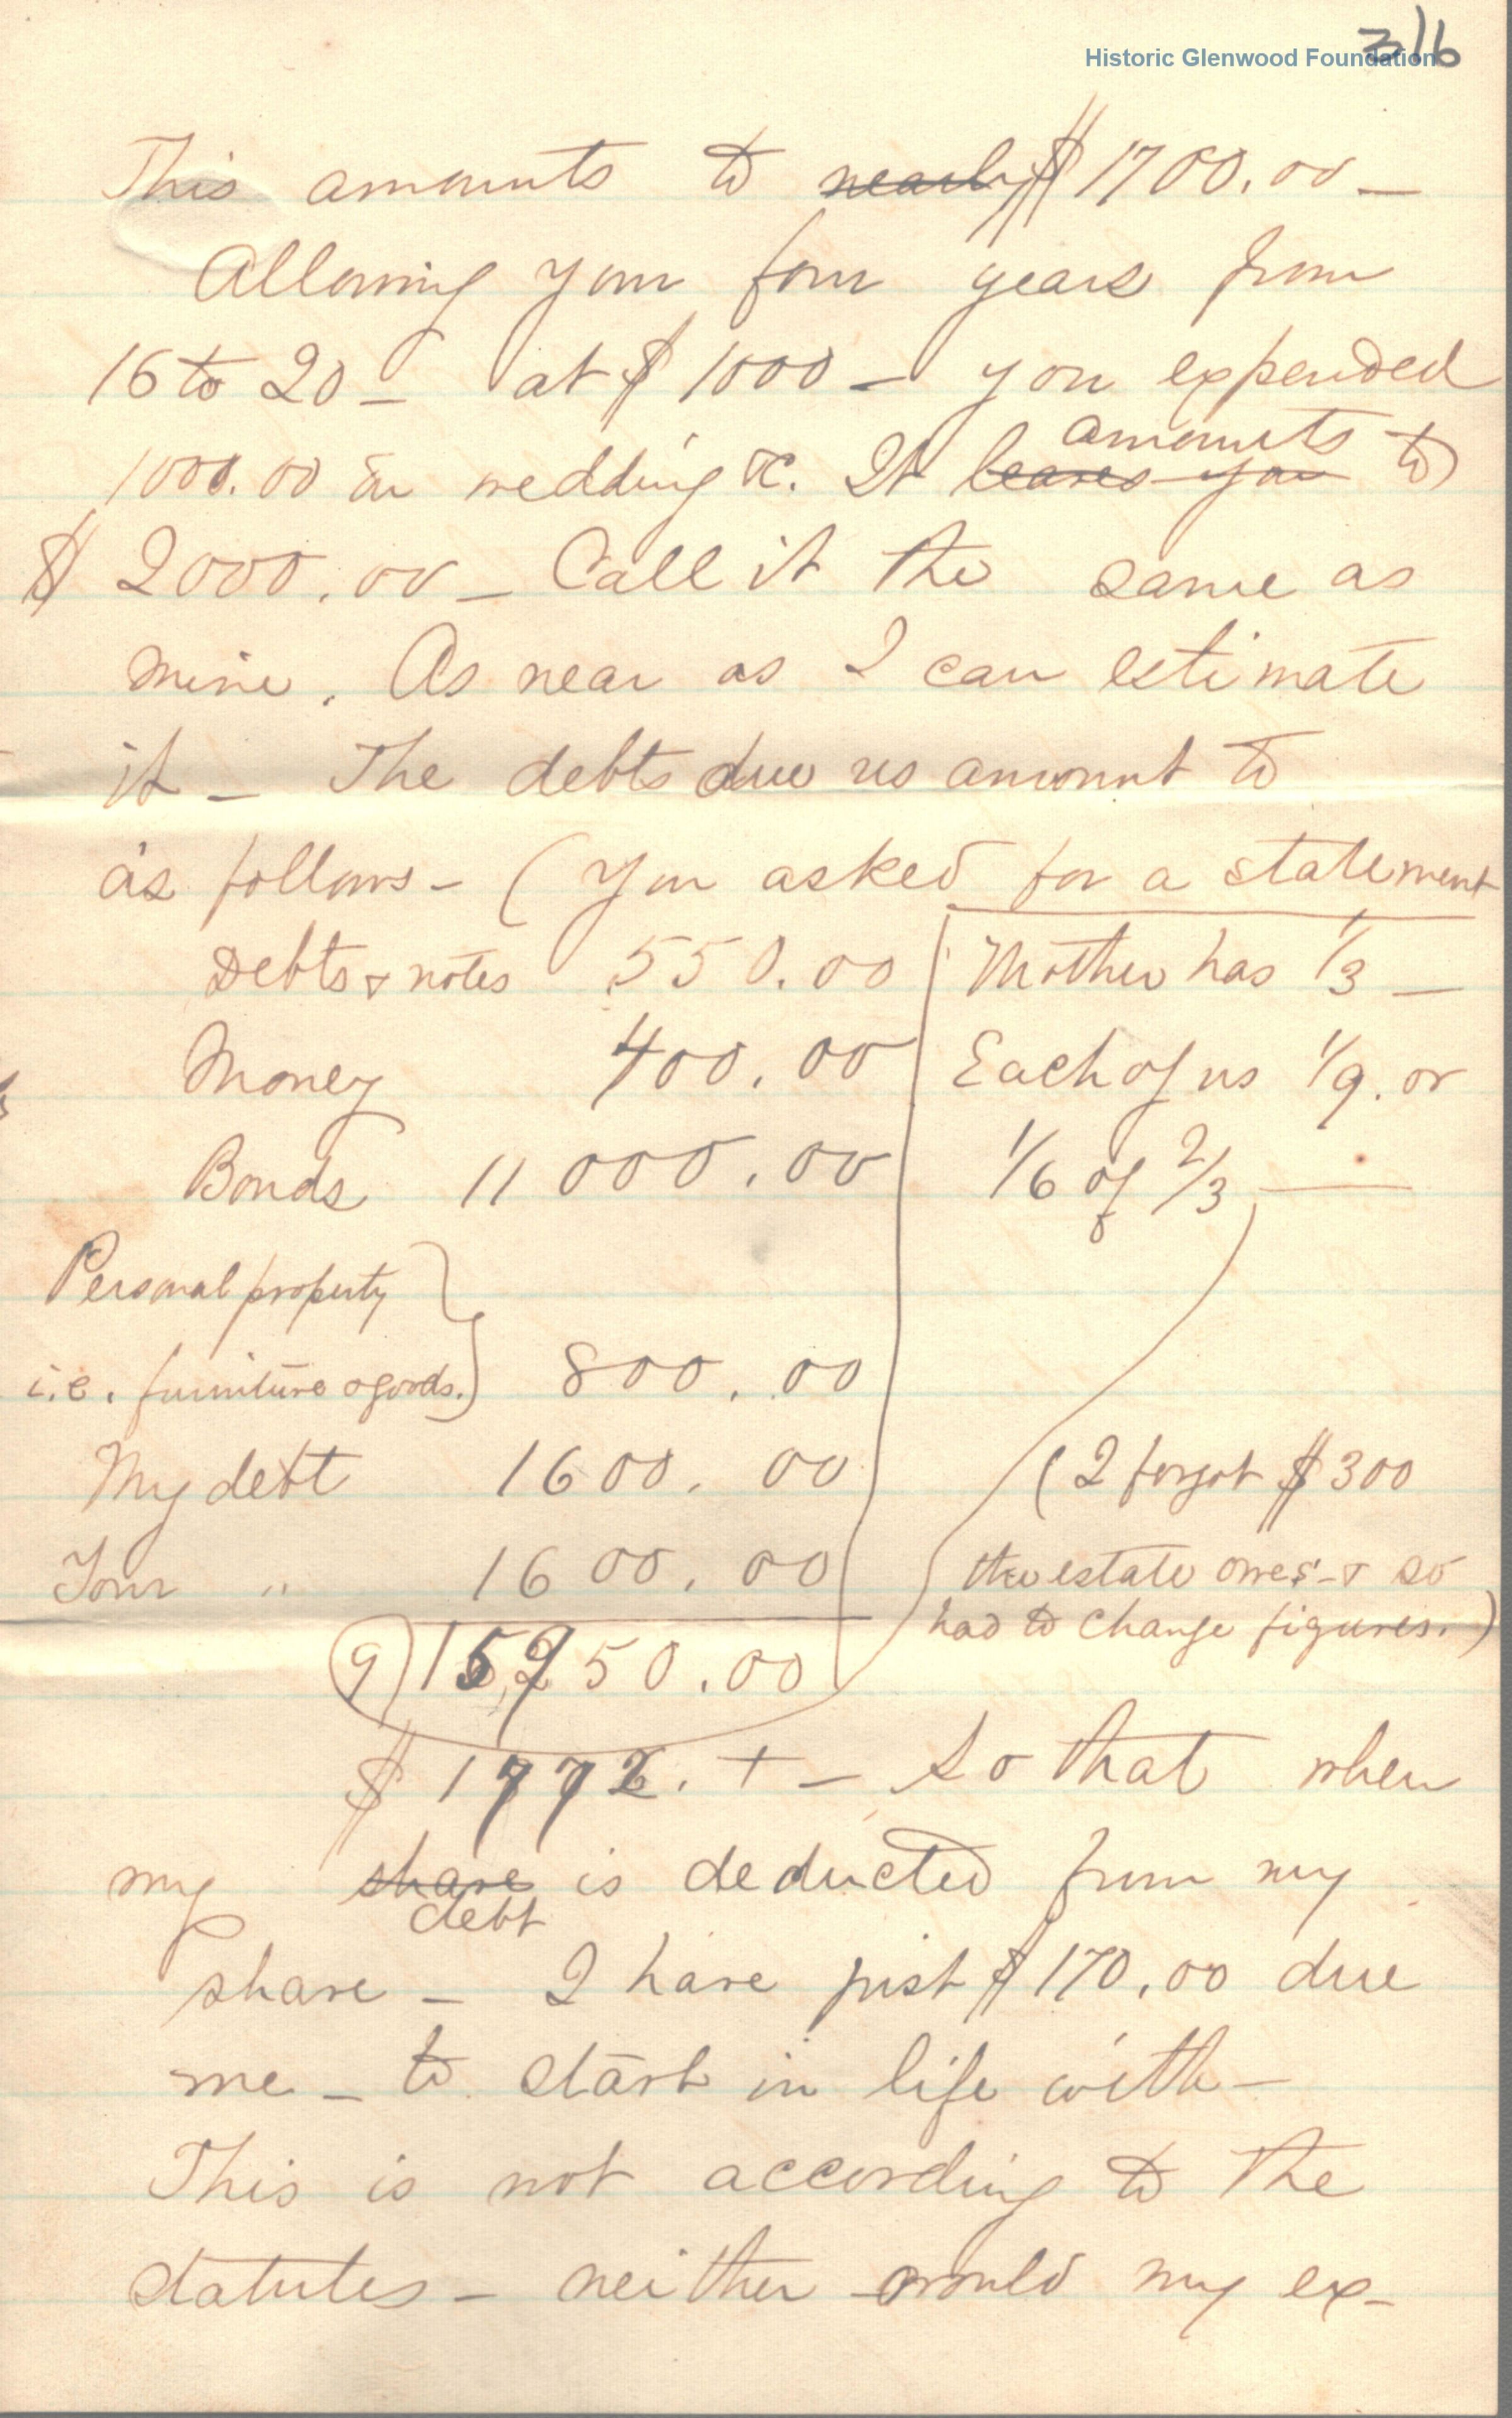 316
Historic Glenwood Foundation
This amounts to nearly $1700.00 —
Allowing you four years from
16 to 20 — at $1000 — you expended
amounts
1000.00 in wedding &c. It leaves you to
$2000.00 — Call it the same as
mine. As near as I can estimate
it — The debts due us amount to
as follows — (You asked for a statement
Debts & notes 550.00 Mother has 1/3 —
Money 400.00 Each of us 1/9. or
Bonds 11000.00 1/6 of 2/3 —
Personal property
i.e. furniture & goods. 800.00
My debt 1600.00 (I forgot $300
Your " 1600.00 the estate owes — & so
had to change figures.)
9) 15,950.00
$1772. + — So that when
my share is deducted from my
debt
share — I have just $170.00 due
me — to start in life with —
This is not according to the
statutes — neither would my ex-